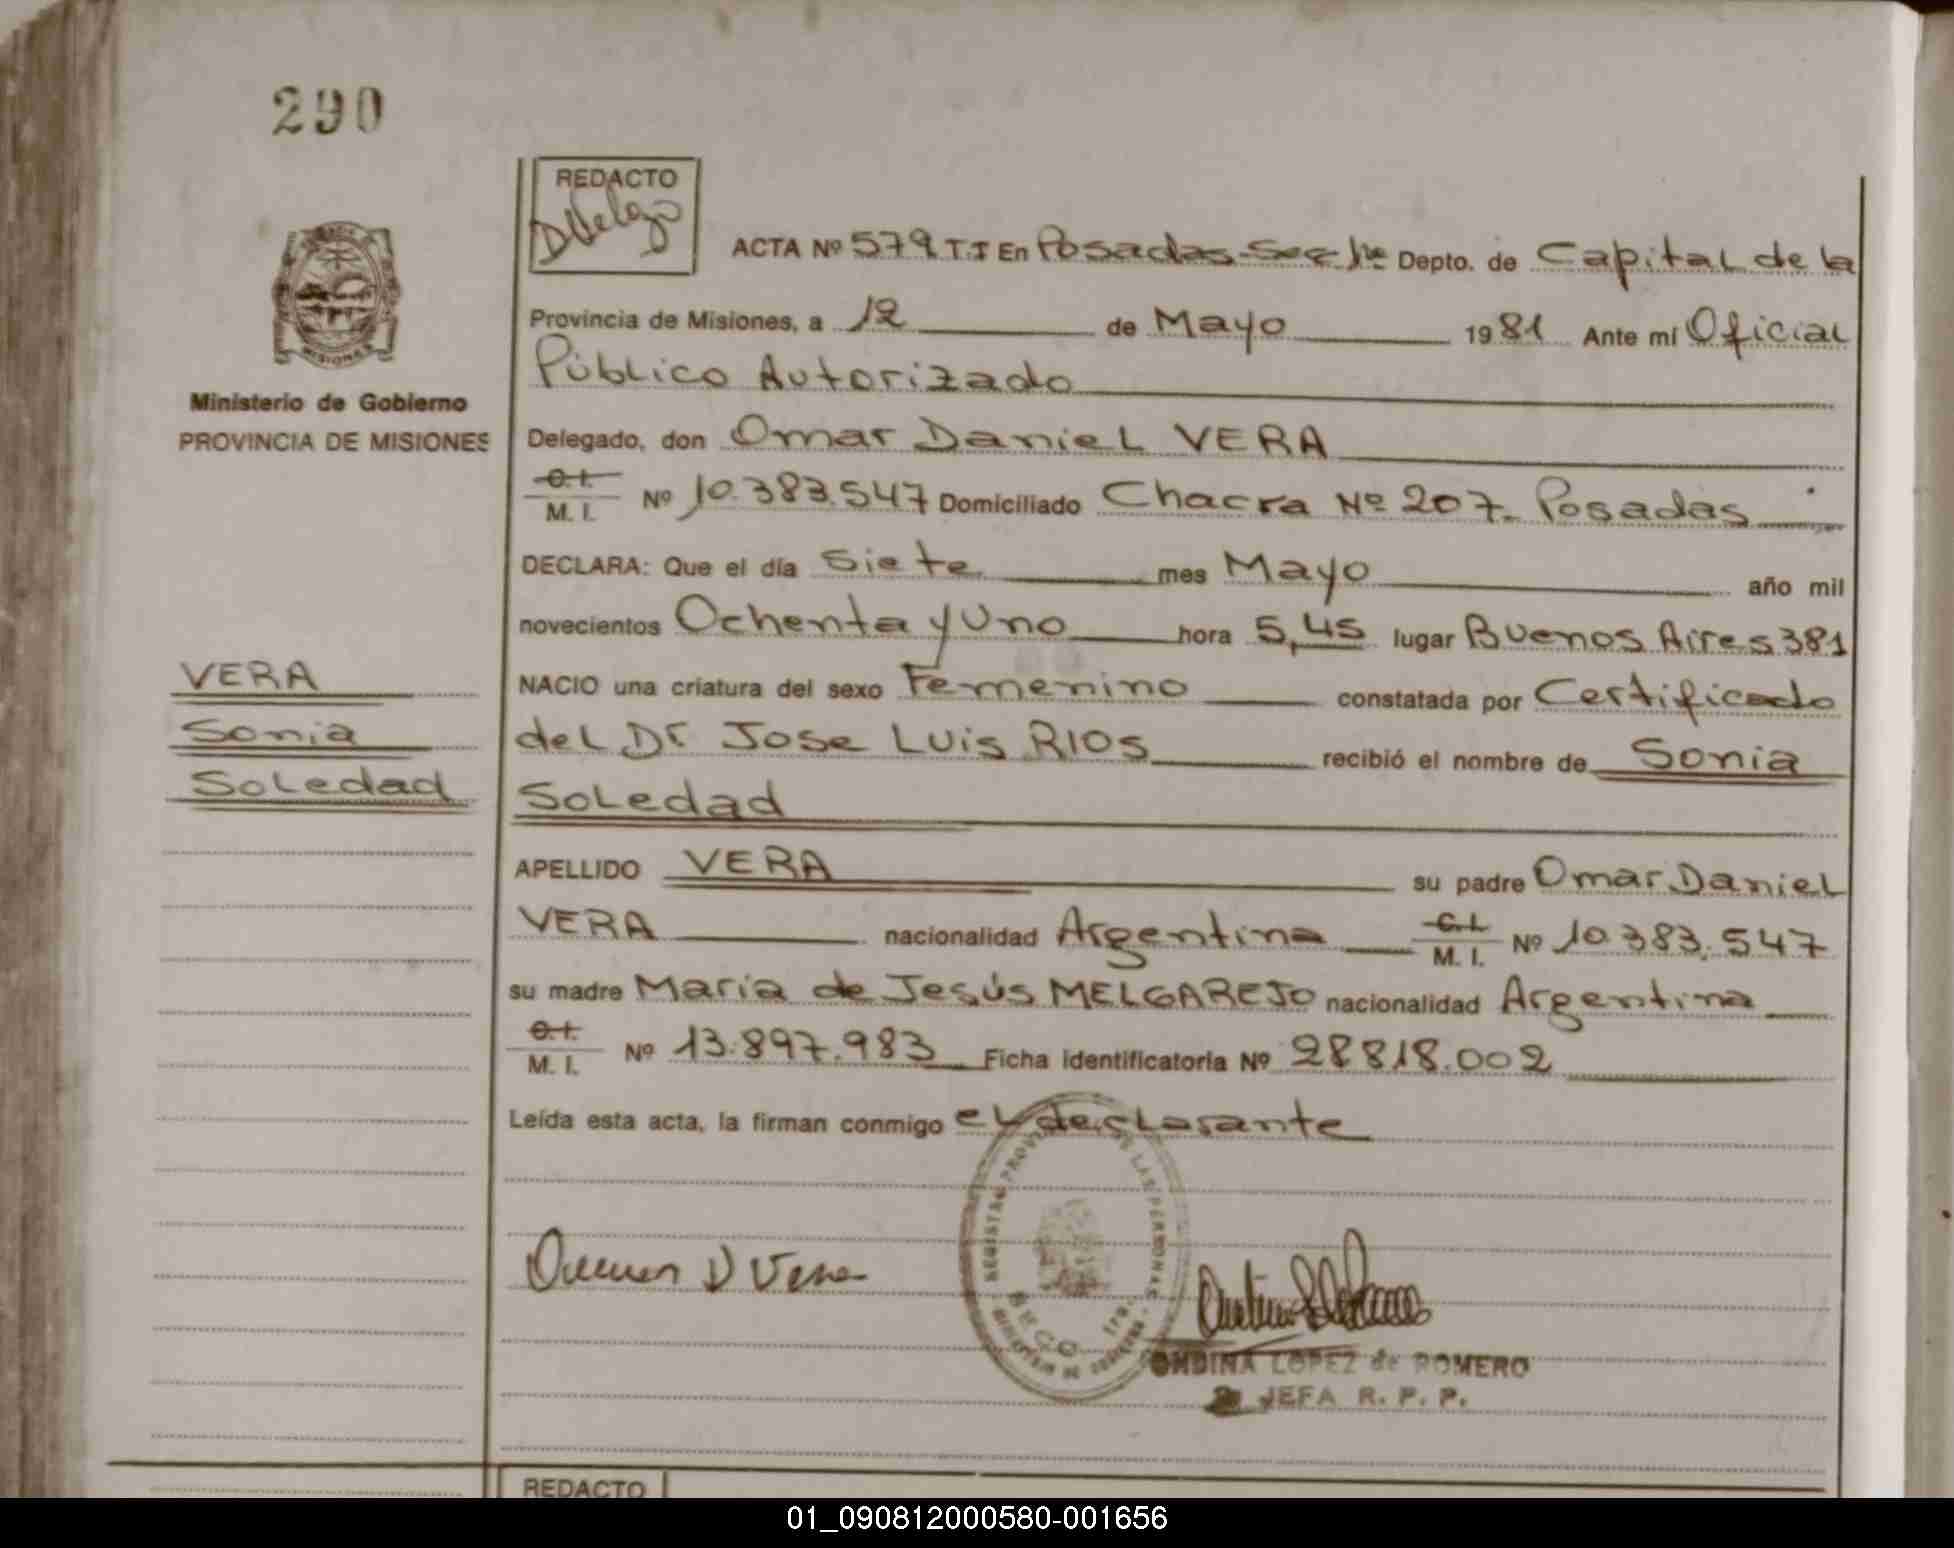 290
REDACTO
Delegado
ACTA Nº 579 T.I En Posadas-Secc 1ra Depto. de Capital de la
Provincia de Misiones, a 12 de Mayo 1981 Ante mí Oficial
Público Autorizado
Ministerio de Gobierno
PROVINCIA DE MISIONES
Delegado, don Omar Daniel VERA
C.I. M. I. Nº 10.383.547 Domiciliado Chacra Nº 207. Posadas
DECLARA: Que el día Siete mes Mayo año mil
novecientos Ochenta y Uno hora 5,45 lugar Buenos Aires 381
VERA
Sonia
Soledad
NACIO una criatura del sexo Femenino constatada por Certificado
del Dr Jose Luis RIOS recibió el nombre de Sonia
Soledad
APELLIDO VERA su padre Omar Daniel
VERA nacionalidad Argentina C.I. M. I. Nº 10.383.547
su madre Maria de Jesús MELGAREJO nacionalidad Argentina
C.I. M. I. Nº 13.897.983 Ficha identificatoria Nº 28818.002
Leída esta acta, la firman conmigo el declarante
Omar D Vera
ONDINA LOPEZ de ROMERO
JEFA R. P. P.
REDACTO
01_090812000580-001656